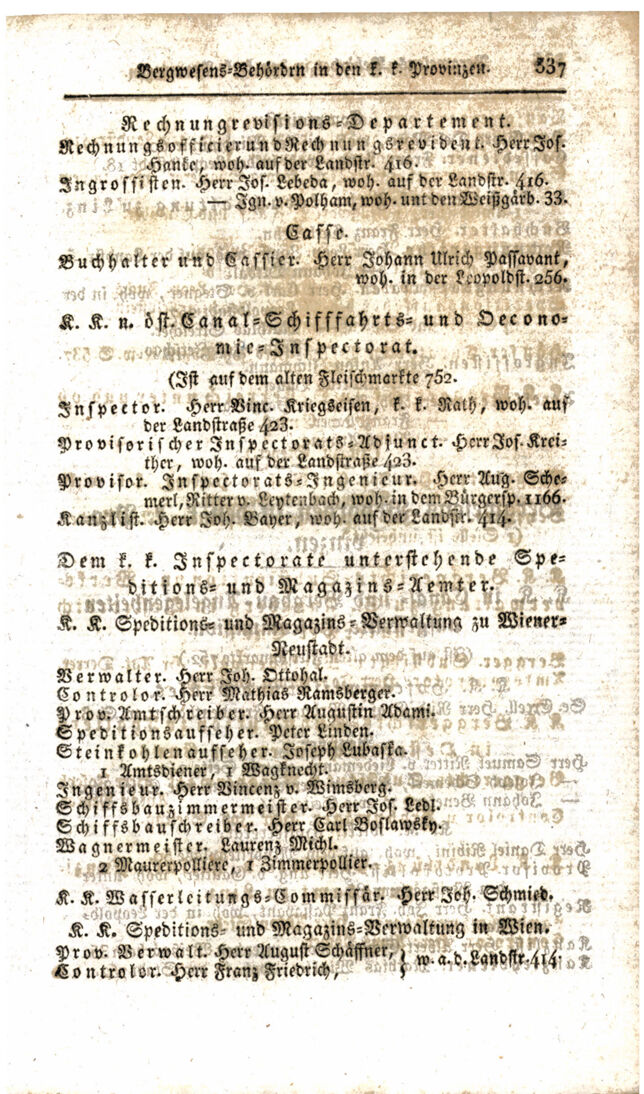 Bergwesens-Behördrn in den k. k. Provinzen. 337
Rechnungsrevisions-Departement.
Rechnungsofficier und Rechnungsrevident. Herr Jos.
Hanke, woh. auf der Landstr. 416.
Ingrossisten. Herr Jos. Lebeda, woh. auf der Landstr. 416.
— Ign. v. Polham, woh. unt den Weißgärb. 33.
Casse.
Buchhalter und Cassier. Herr Johann Ulrich Passavant,
woh. in der Leopoldst. 256.
K. K. n. öst. Canal-Schifffahrts- und Oecono-
mie-Inspectorat.
(Ist auf dem alten Fleischmarkte 752.
Inspector. Herr Vinc. Kriegseisen, k. k. Rath, woh. auf
der Landstraße 423.
Provisorischer Inspectorats-Adjunct. Herr Jos. Krei-
ther, woh. auf der Landstraße 423.
Provisor. Inspectorats-Ingenieur. Herr Aug. Sche-
merl, Ritter v. Leytenbach, woh. in dem Bürgersp. 1166.
Kanzlist. Herr Joh. Bayer, woh. auf der Landstr. 414.
Dem k. k. Inspectorate unterstehende Spe-
ditions- und Magazins-Aemter.
K. K. Speditions- und Magazins-Verwaltung zu Wiener-
Neustadt.
Verwalter. Herr Joh. Ottohal.
Controlor. Herr Mathias Ramsberger.
Prov. Amtschreiber. Herr Augustin Adami.
Speditionsaufseher. Peter Linden.
Steinkohlenaufseher. Joseph Lubaska.
1 Amtsdiener, 1 Wagknecht.
Ingenieur. Herr Vincenz v. Wimsberg.
Schiffsbauzimmermeister. Herr Jos. Ledl.
Schiffsbauschreiber. Herr Carl Boslawsky.
Wagnermeister. Laurenz Michl.
2 Maurerpolliere, 1 Zimmerpollier.
K. K. Wasserleitungs-Commissär. Herr Joh. Schmied.
K. K. Speditions- und Magazins-Verwaltung in Wien.
Prov. Verwalt. Herr August Schäffner, } w. a. d. Landstr. 414
Controlor. Herr Franz Friedrich,